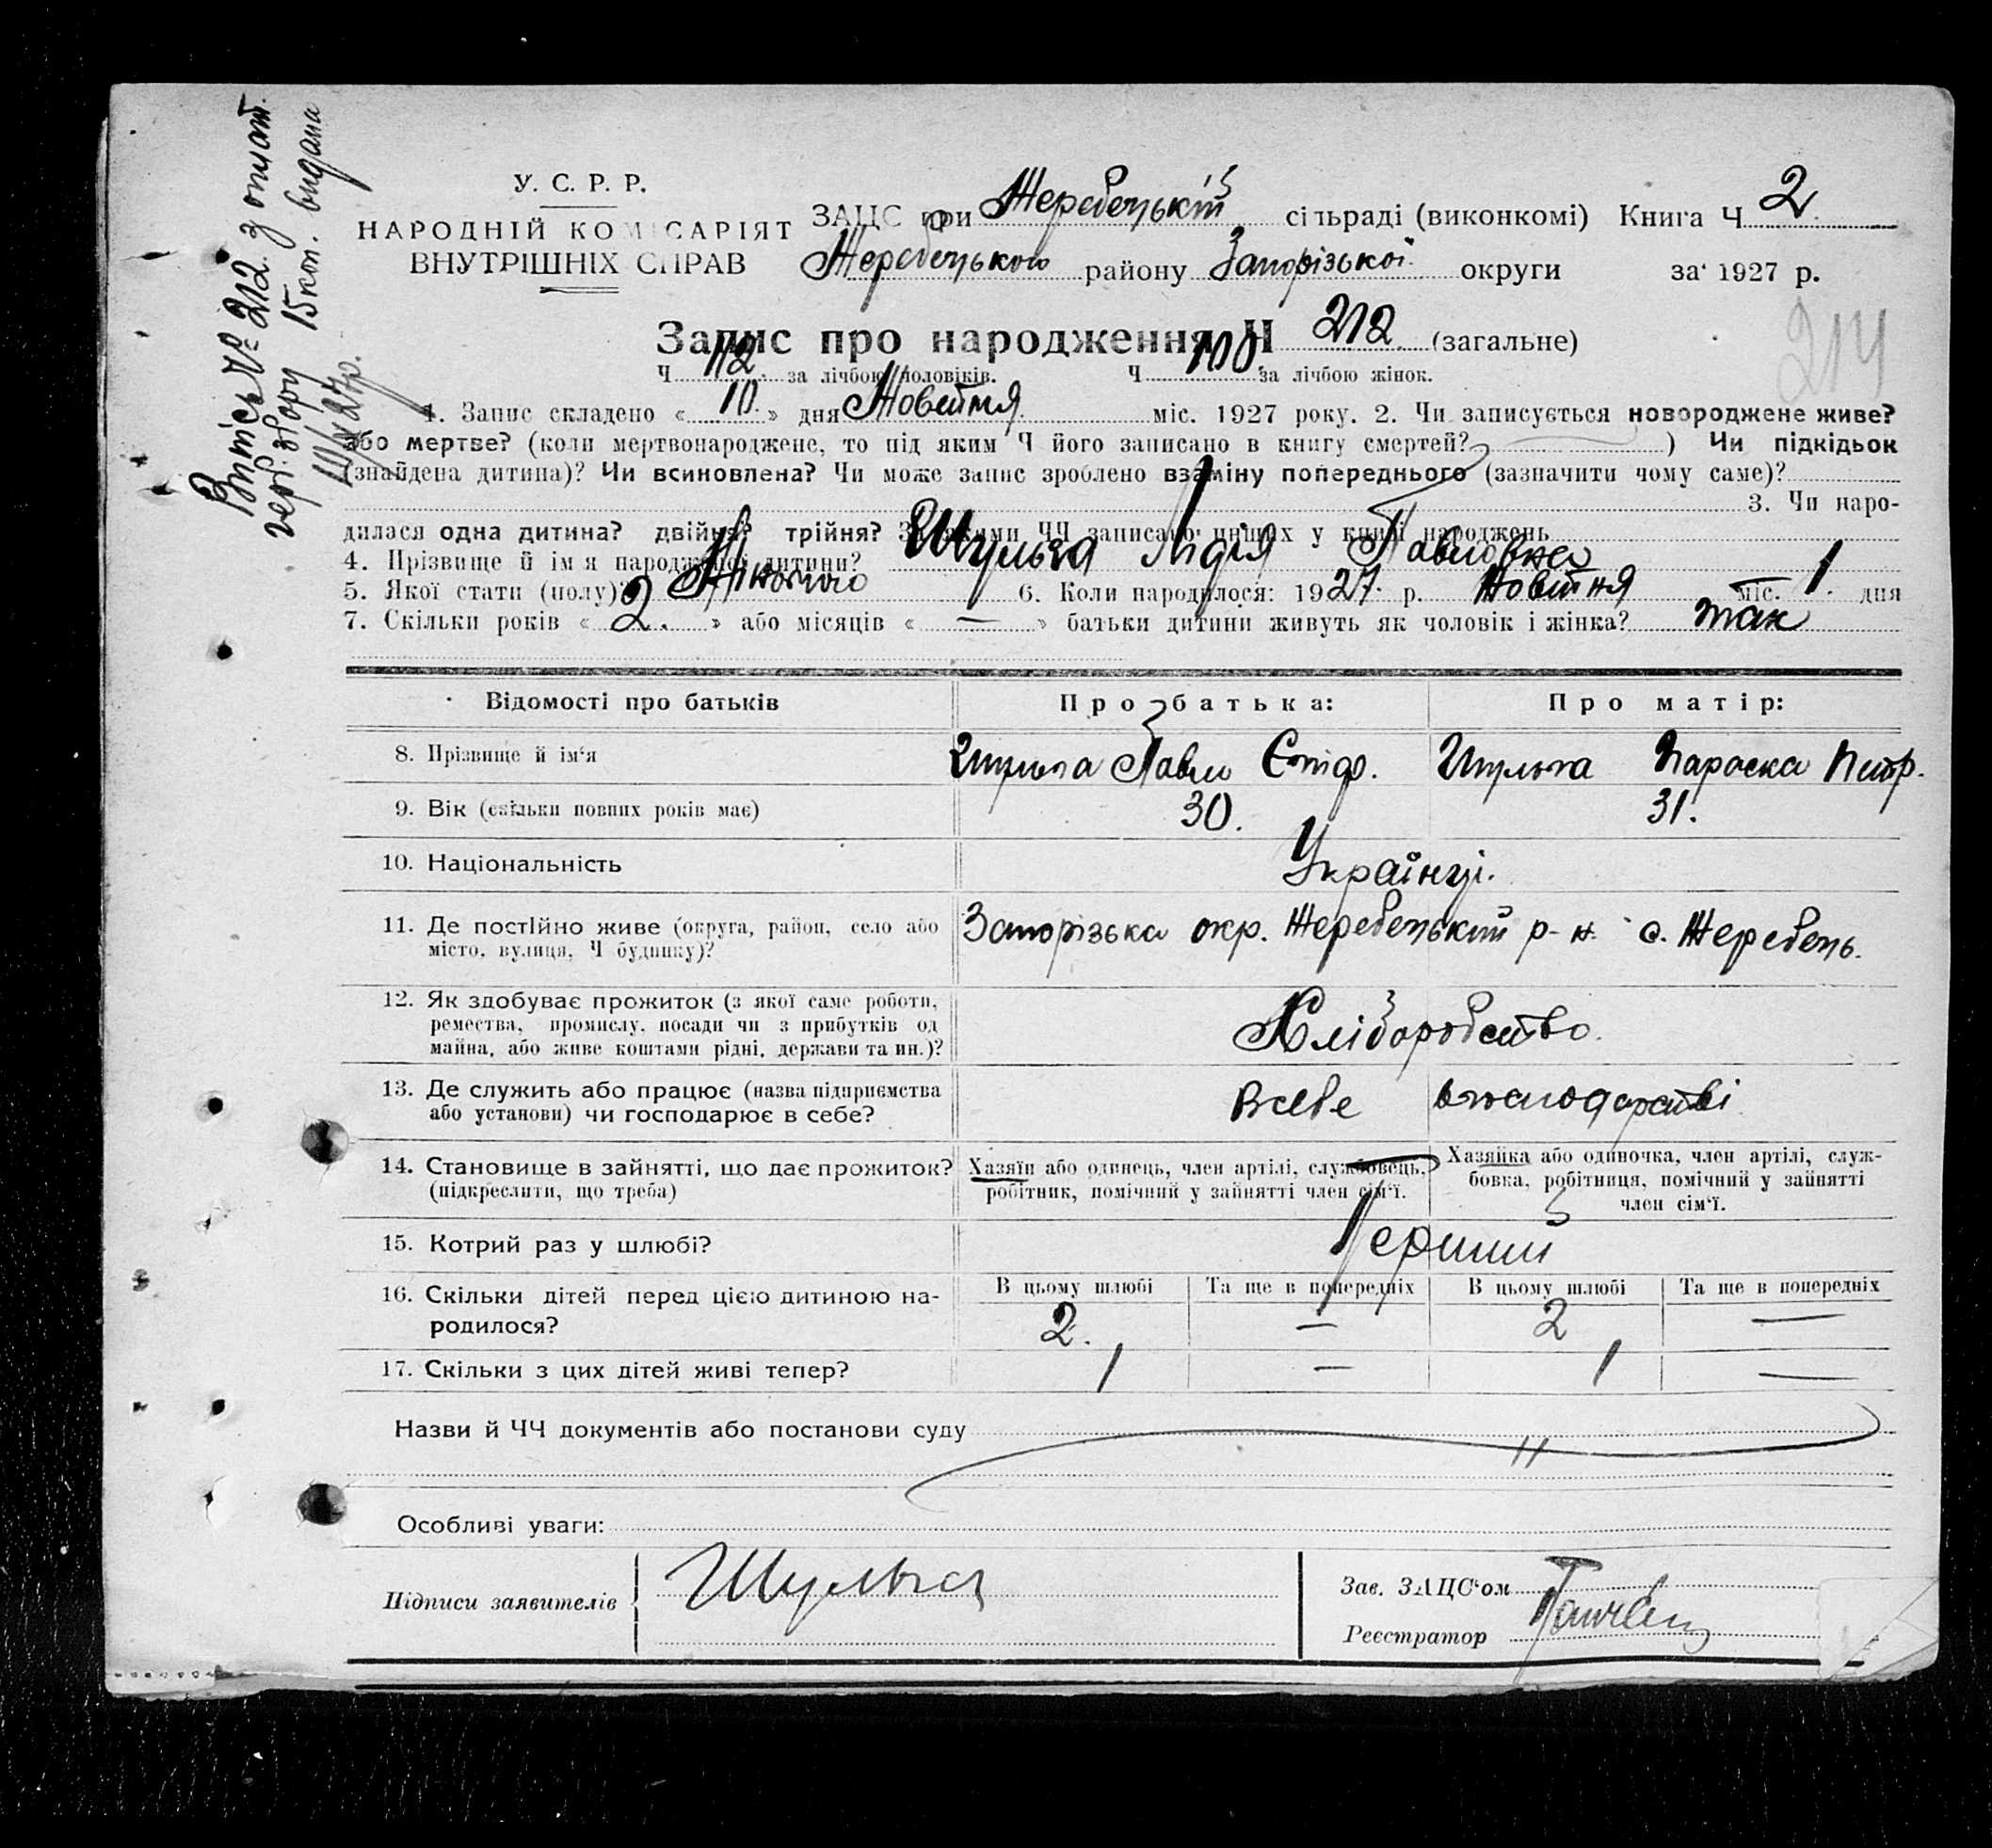 Витісь № 212 з оплат.
герб. збору 15 коп. видана
10/X 27р.
У. С. Р. Р.
НАРОДНІЙ КОМІСАРІЯТ
ВНУТРІШНІХ СПРАВ
ЗАЦС при Жеребецькій сільраді (виконкомі) Книга Ч 2
Жеребецького району Запорізької округи за 1927 р.
Запис про народження Ч 212. (загальне)
214
Ч 112 за лічбою половіків. Ч 100. за лічбою жінок.
1. Запис складено « 10. » дня Жовтня міс. 1927 року. 2. Чи записується новороджене живе?
або мертве? (коли мертвонароджене, то під яким Ч його записано в книгу смертей? ) Чи підкідьок
(знайдена дитина)? Чи всиновлена? Чи може запис зроблено взаміну попереднього (зазначити чому саме)?
3. Чи наро-
дилася одна дитина? двійня? трійня? За якими ЧЧ записано инших у книзі народжень
4. Прізвище й ім я народженої дитини? Шульга Лідія Павловна
5. Якої стати (полу)? Жіночого 6. Коли народилося: 1927. р. Жовтня міс. 1. дня
7. Скільки років « 2. » або місяців « — » батьки дитини живуть як чоловік і жінка? так
Відомості про батьків Про батька: Про матір:
8. Прізвище й ім‘я Шульга Павло Єтіф. Шульга Параска Петр.
9. Вік (скільки повних років має) 30. 31.
10. Національність Українці.
11. Де постійно живе (округа, район, село або
місто, вулиця, Ч будинку)? Запорізька окр. Жеребецький р-н. с. Жеребець.
12. Як здобуває прожиток (з якої саме роботи,
ремества, промислу, посади чи з прибутків од
майна, або живе коштами рідні, держави та ин.)? Хліборобство.
13. Де служить або працює (назва підприємства
або установи) чи господарює в себе? Всебе вгосподарстві
14. Становище в зайнятті, що дає прожиток?
(підкреслити, що треба)
Хазяїн або одинець, член артілі, службовець,
робітник, помічний у зайнятті член сім‘ї.
Хазяйка або одиночка, член артілі, служ-
бовка, робітниця, помічний у зайнятті
член сім‘ї.
15. Котрий раз у шлюбі? Перший
16. Скільки дітей перед цією дитиною на-
родилося?
В цьому шлюбі Та ще в попередніх В цьому шлюбі Та ще в попередніх
2. — 2 —
17. Скільки з цих дітей живі тепер? 1 — 1 —
Назви й ЧЧ документів або постанови суду
Особливі уваги:
Підписи заявителів Шульга
Зав. ЗАЦС‘ом
Реєстратор